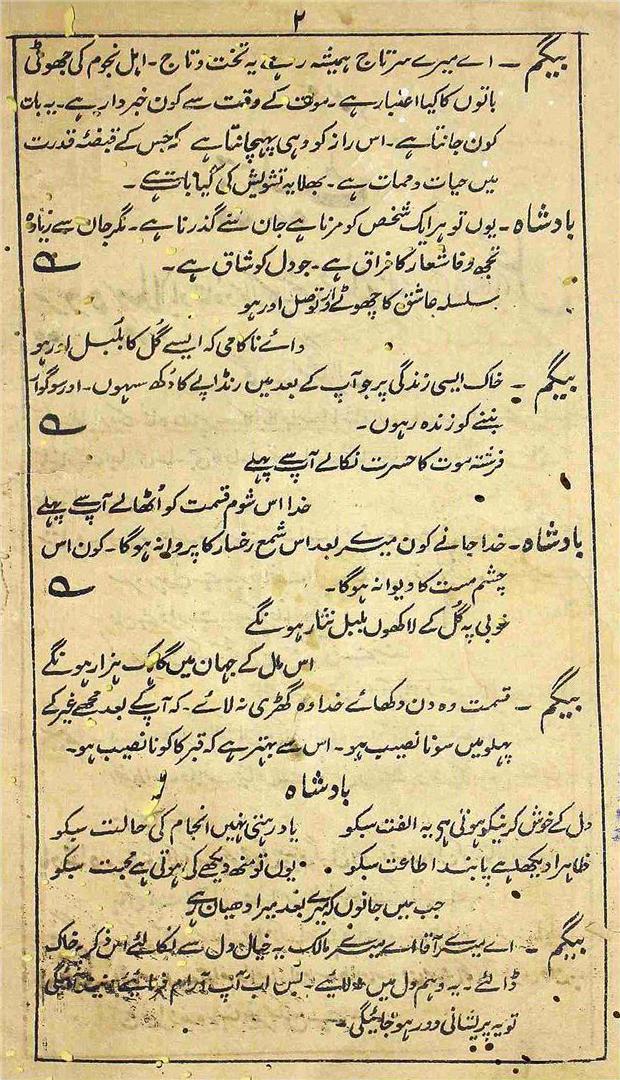 ۲
بیگم - اے میرے سرتاج ہمیشہ رہے یہ تخت و تاج - اہل نجوم کی جھوٹی
باتوں کا کیا اعتبار ہے - موت کے وقت سے کون خبردار ہے - یہ بات
کون جانتا ہے - اس راز کو وہی پہچانتا ہے کہ جس کے قبضۂ قدرت
میں حیات و ممات ہے - بھلا یہ تشویش کی کیا بات ہے -
بادشاہ - یوں تو ہر ایک شخص کو مرنا ہے جان سے گذرنا ہے - مگر جان سے زیادہ
تجھ وفا شعار کا فراق ہے - جو دل کو شاق ہے -
سلسلہ عاشق کا چھوٹے اور تو وصل اور ہو
وائے ناکامی کہ ایسے گُل کا بُلبل اور ہو
بیگم - خاک ایسی زندگی پر جو آپ کے بعد میں رنڈاپے کا دُکھ سہوں - اور سوگوار
بننے کو زندہ رہوں -
فرشتہ موت کا حسرت نکالے آپ سے پہلے
خدا اس شوم قسمت کو اُٹھالے آپ سے پہلے
بادشاہ - خدا جانے کون میرے بعد اس شمع رخسار کا پروانہ ہوگا - کون اس
چشم مست کا دیوانہ ہوگا -
خوبی پہ گُل کے لاکھوں بلبل نثار ہونگے
اس مال کے جہان میں گاہک ہزار ہونگے
بیگم - قسمت وہ دن دکھائے خدا وہ گھڑی نہ لائے - کہ آپ کے بعد مجھے غیر کے
پہلو میں سونا نصیب ہو - اس سے بہتر ہے کہ قبر کا کونا نصیب ہو -
بادشاہ
دل کے خوش کرنیکو ہوتی ہی یہ الفت سبکو یاد رہتی نہیں انجام کی حالت سبکو
ظاہرا دیکھا ہے پابند اطاعت سبکو یوں تو منھ دیکھے کی ہوتی ہے محبت سبکو
جب میں جانوں کہ میرے بعد میرا دھیان رہے
بیگم - اے میرے آقا اے میرے مالک یہ خیال دل سے نکالئے اس ذکر پہ خاک
ڈالئے - یہ وہم دل میں نہ لایئے - بس اب آپ آرام فرمایئے
تو یہ پریشانی دور ہو جائیگی -